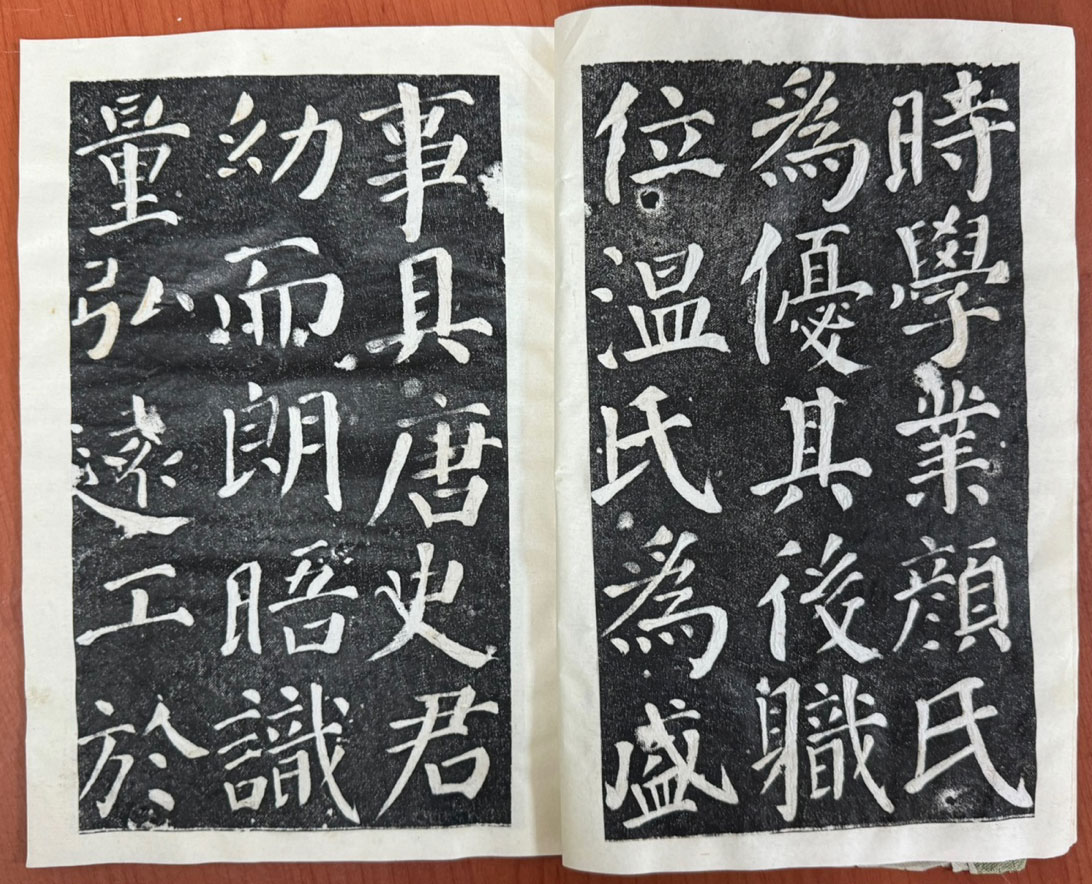 時學業顏氏
為優其後職
位温氏為盛
事具唐史君
幼而朗晤識
量弘遠工於